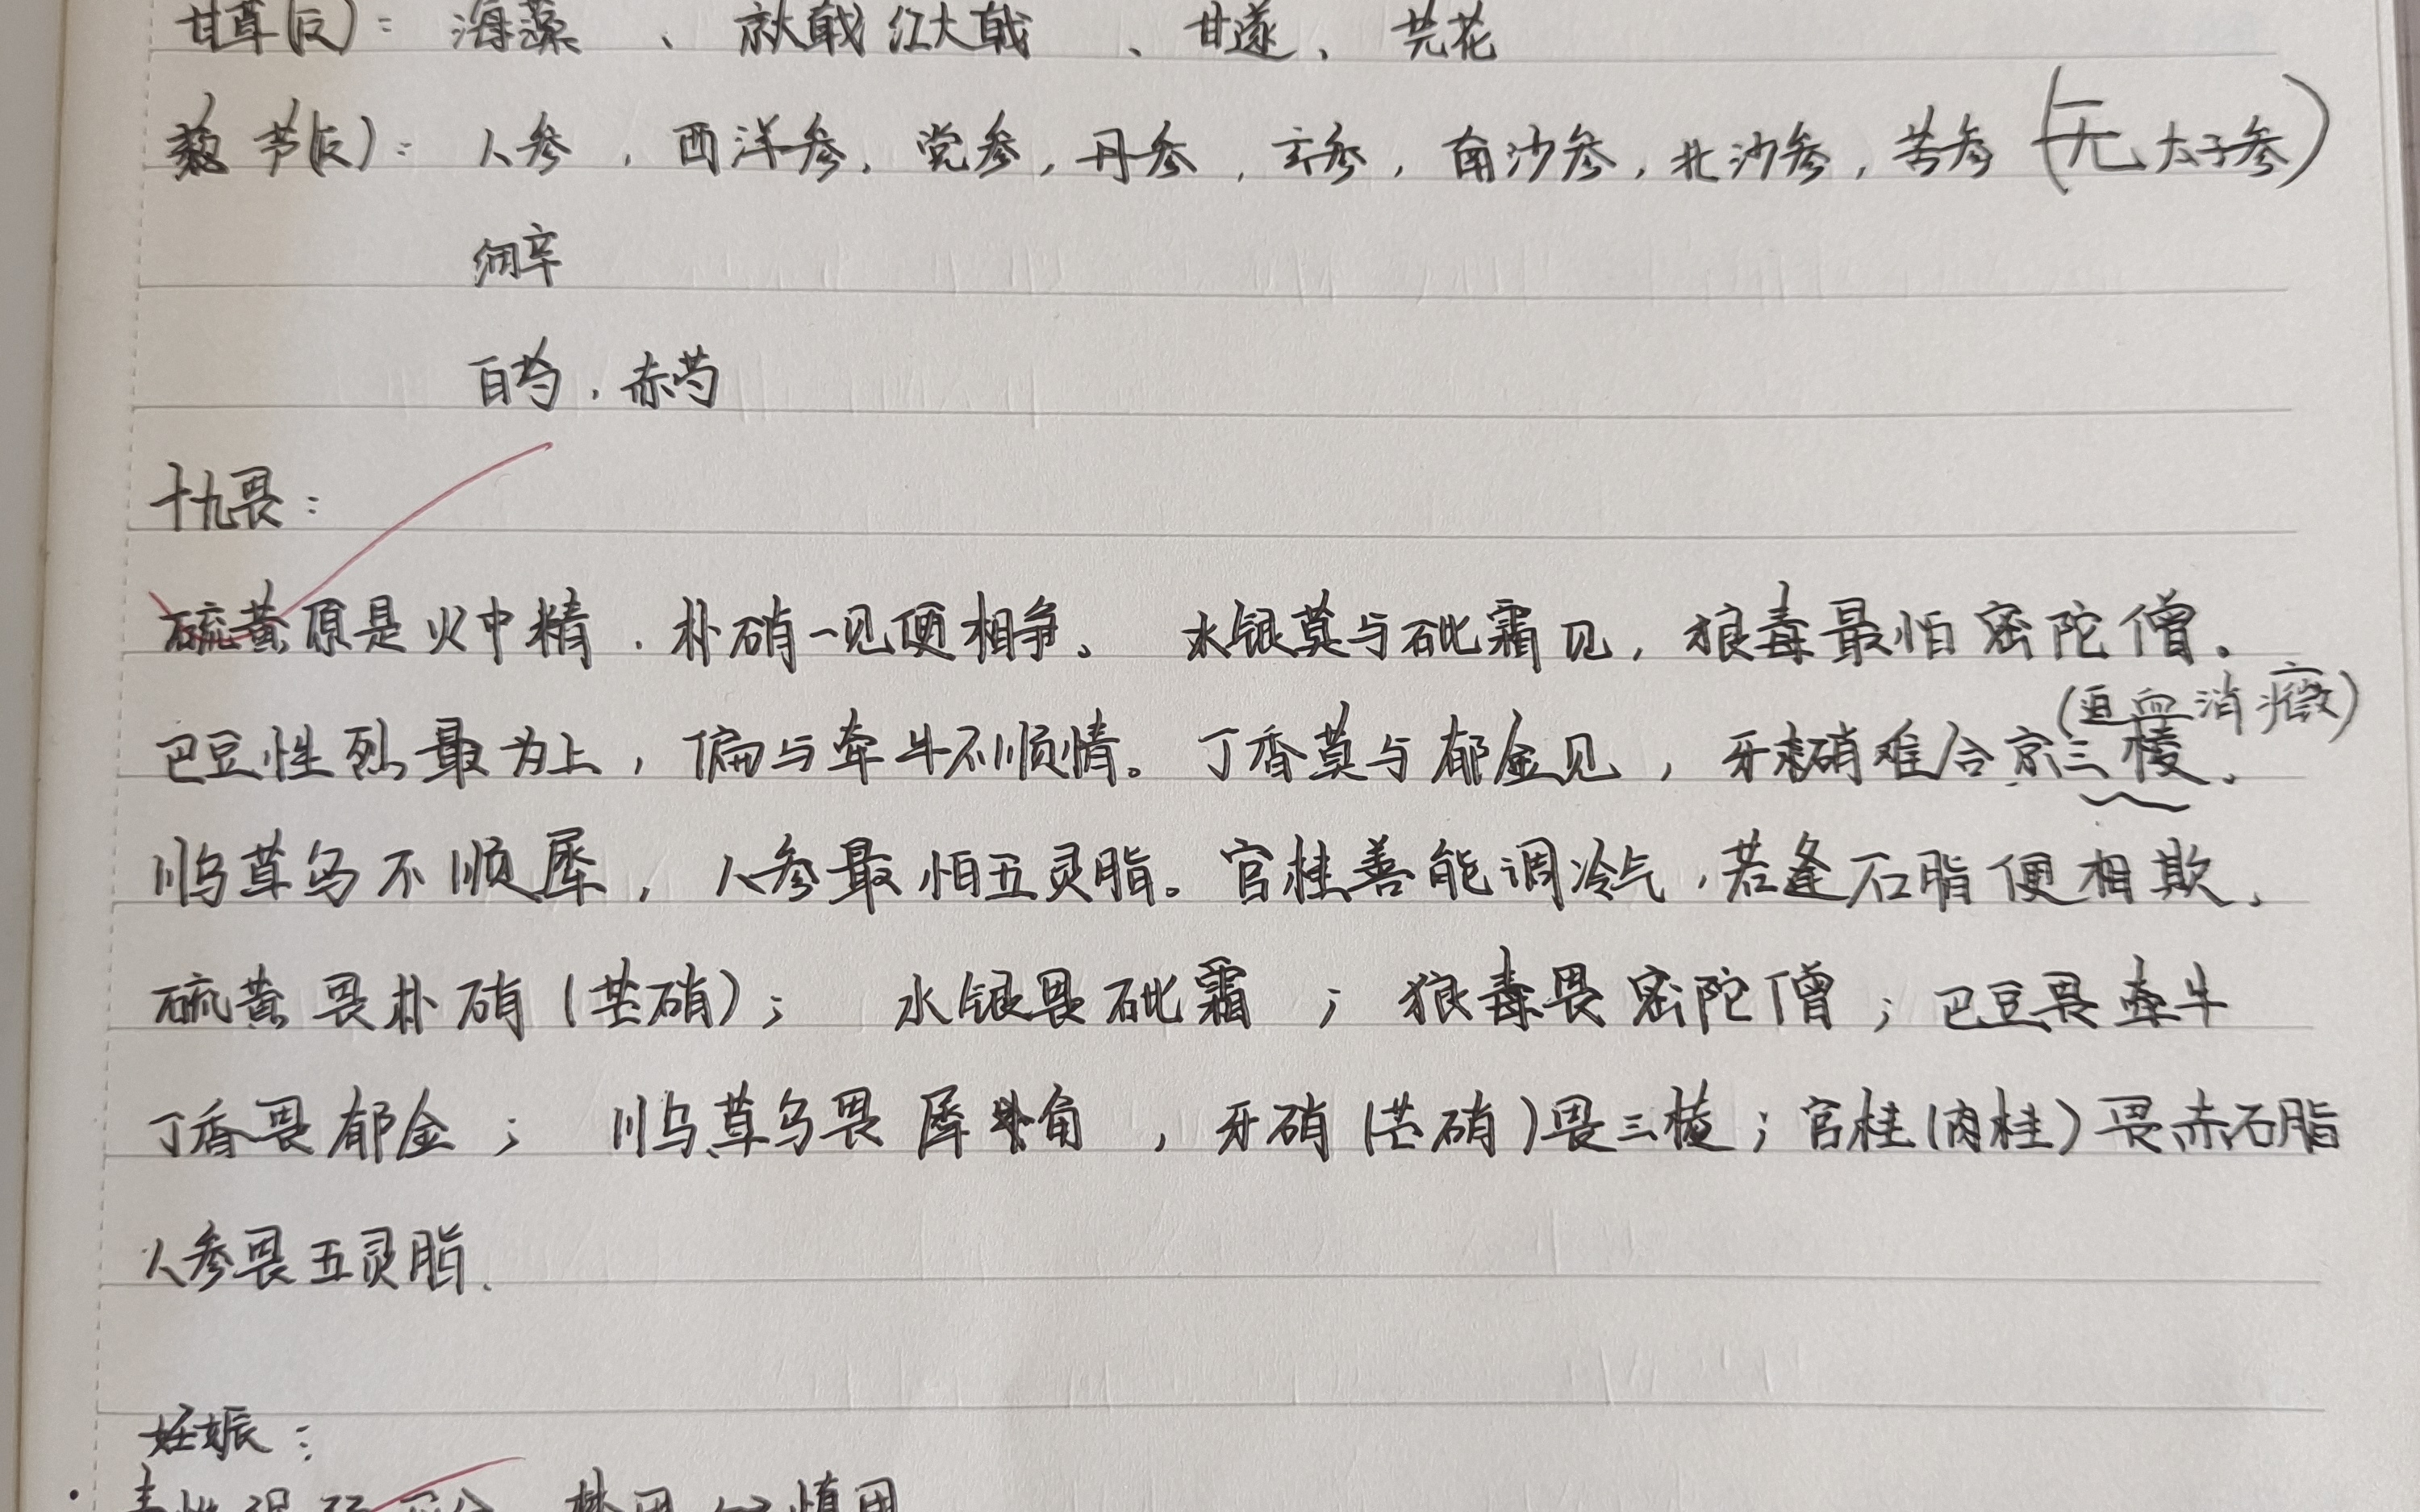 甘草(反)：海藻、京大戟 红大戟、甘遂、芫花
藜芦(反)：人参，西洋参，党参，丹参，玄参，南沙参，北沙参，苦参（无太子参）
细辛
白芍，赤芍
十九畏：
硫黄原是火中精，朴硝一见便相争。水银莫与砒霜见，狼毒最怕密陀僧。
巴豆性烈最为上，偏与牵牛不顺情。丁香莫与郁金见，牙硝难合京三棱，(逐血消癥)
川乌草乌不顺犀，人参最怕五灵脂。官桂善能调冷气，若逢石脂便相欺，
硫黄畏朴硝(芒硝)；水银畏砒霜；狼毒畏密陀僧；巴豆畏牵牛
丁香畏郁金；川乌草乌畏犀角，牙硝(芒硝)畏三棱；官桂(肉桂)畏赤石脂
人参畏五灵脂.
妊娠：
禁用 慎用